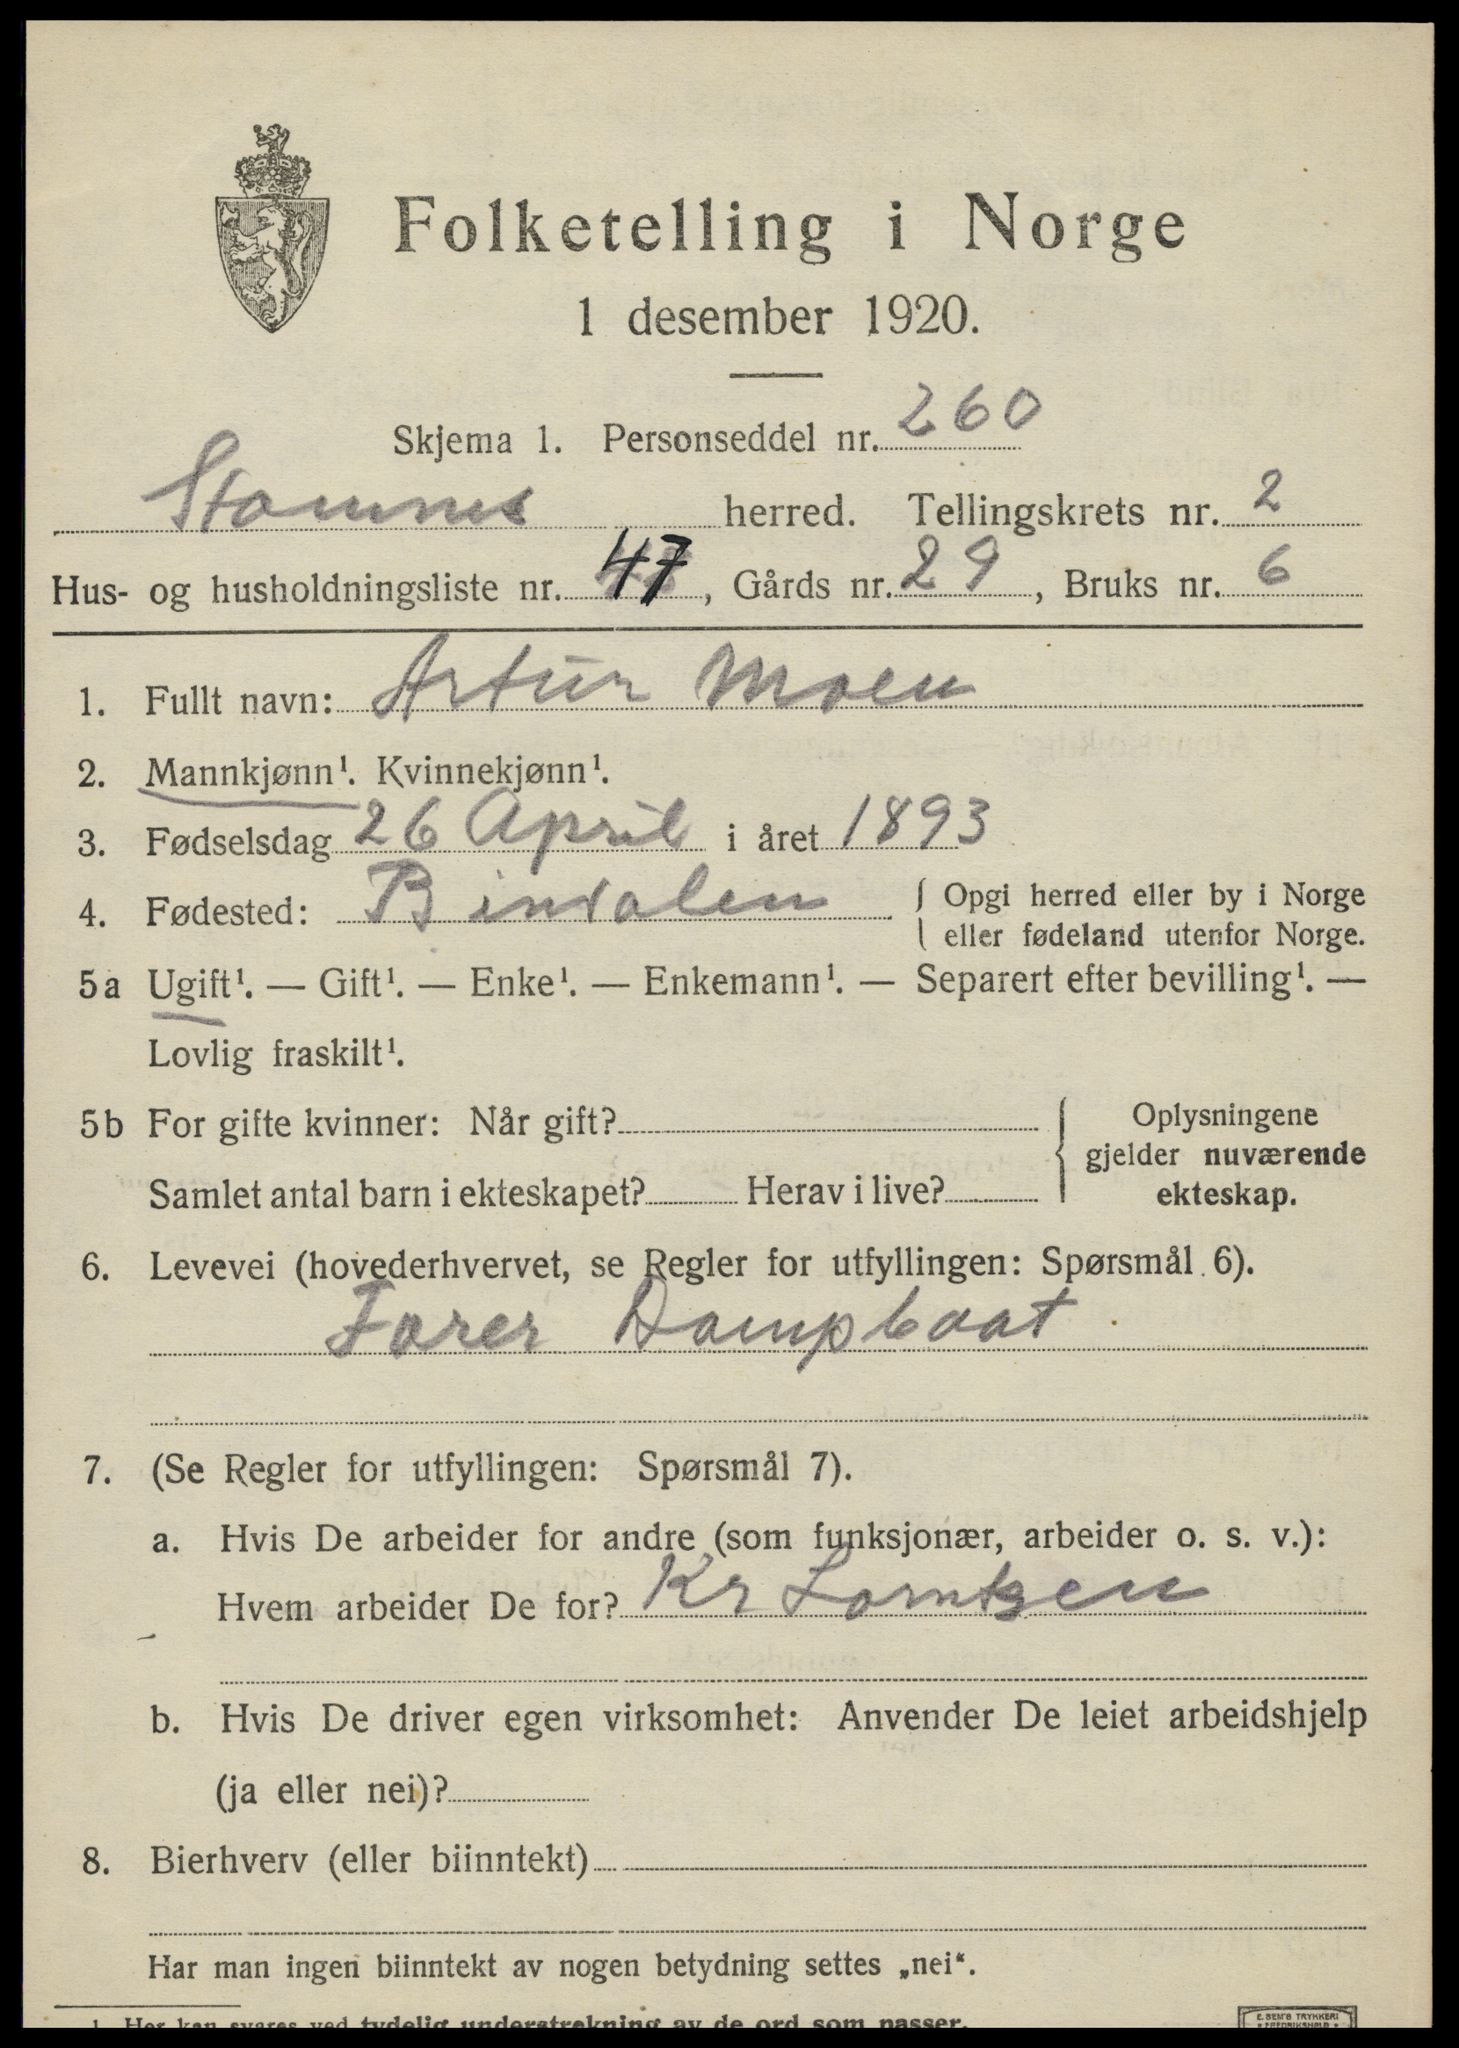 Folketelling i Norge
1 desember 1920.
Skjema 1. Personseddel nr. 260
Stamnes herred. Tellingskrets nr. 2
Hus- og husholdningsliste nr. 47, Gårds nr. 29, Bruks nr. 6
1. Fullt navn: Artur Moen
2. Mannkjønn¹. Kvinnekjønn¹.
3. Fødselsdag 26 April i året 1893
4. Fødested: Bindalen { Opgi herred eller by i Norge
eller fødeland utenfor Norge.
5a Ugift¹. — Gift¹. — Enke¹. — Enkemann¹. — Separert efter bevilling¹. —
Lovlig fraskilt¹.
5b For gifte kvinner: Når gift?
Samlet antal barn i ekteskapet? Herav i live?
Oplysningene
gjelder nuværende
ekteskap.
6. Levevei (hovederhvervet, se Regler for utfyllingen: Spørsmål 6).
Fører Dampbaat
7. (Se Regler for utfyllingen: Spørsmål 7).
a. Hvis De arbeider for andre (som funksjonær, arbeider o. s. v.):
Hvem arbeider De for? Kr Lorntsen
b. Hvis De driver egen virksomhet: Anvender De leiet arbeidshjelp
(ja eller nei)?
8. Bierhverv (eller biinntekt)
Har man ingen biinntekt av nogen betydning settes „nei“.
1 Her kan svares ved tydelig understrekning av de ord som passer.
E. SEM'S TRYKKERI
FREDRIKSHALD